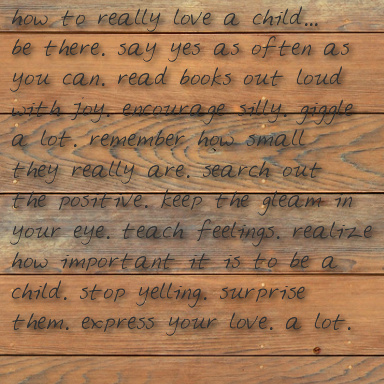 how to really love a child...
be there. say yes as often as
you can. read books out loud
with joy. encourage silly. giggle
a lot. remember how small
they really are. search out
the positive. keep the gleam in
your eye. teach feelings. realize
how important it is to be a
child. stop yelling. surprise
them. express your love. a lot.